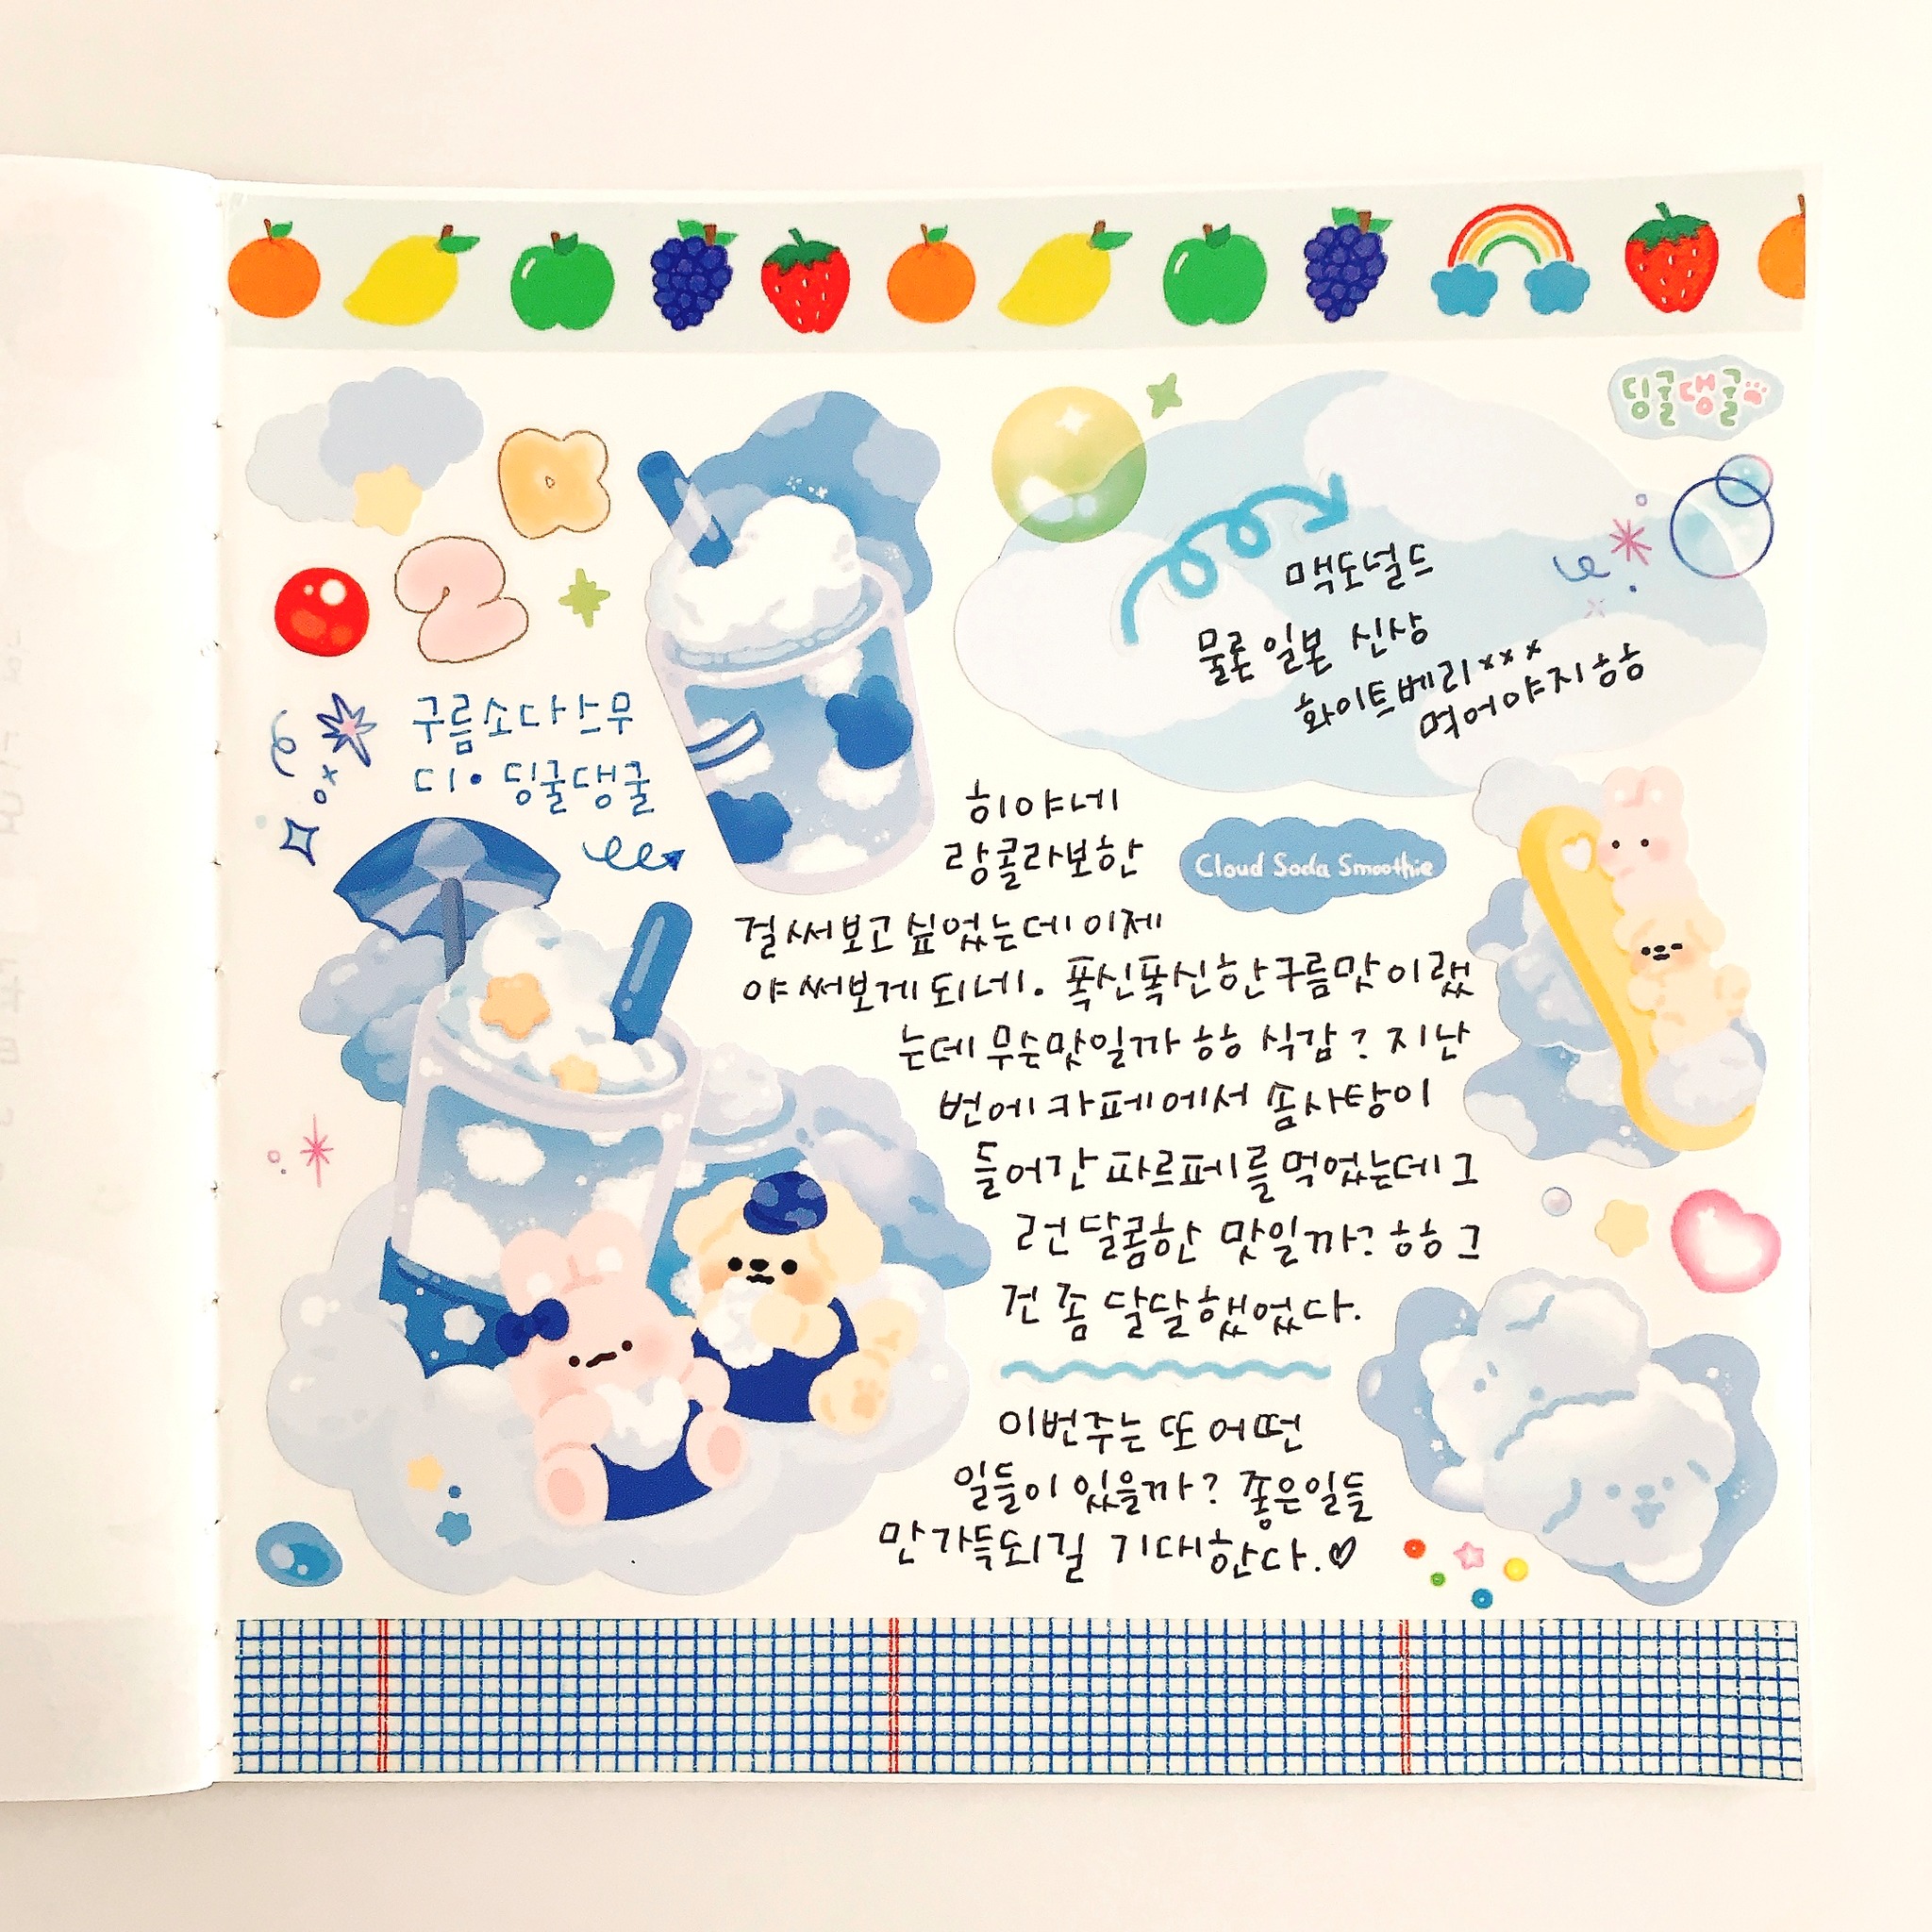 딩굴댕굴
R
2
구름소다스무
디• 딩굴댕굴
맥도널드
물론 일본 신상
화이트베리×××
먹어야지ㅎㅎ
히야네
랑콜라보한
Cloud Soda Smoothie
걸 써보고 싶었는데 이제
야 써보게 되네. 폭신폭신한 구름맛이랬
는데 무슨맛일까 ㅎㅎ 식감? 지난
번에 카페에서 솜사탕이
들어간 파르페를 먹었는데 그
런 달콤한 맛일까? ㅎㅎ 그
건 좀 달달했었다.
이번주는 또 어떤
일들이 있을까? 좋은일들
만 가득되길 기대한다.♡